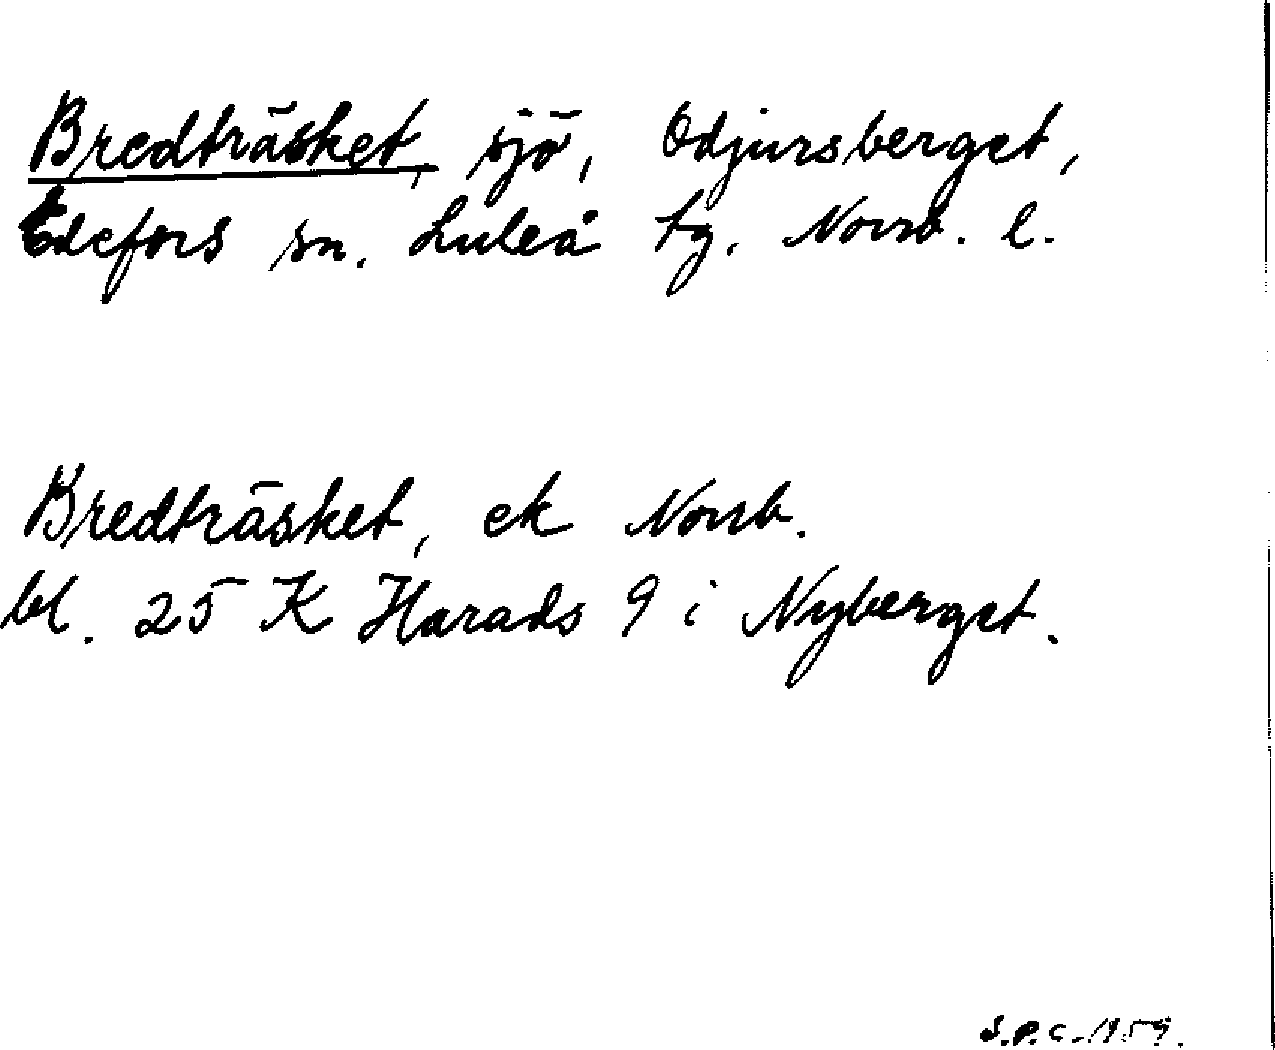 Bredträsket, sjö, Odjursberget,
Edefors sn. Luleå tg. Norrb. l.
Bredträsket, ek Norrb.
bl. 25 K Harads 9 i Nyberget.
S.P.C. 1959.